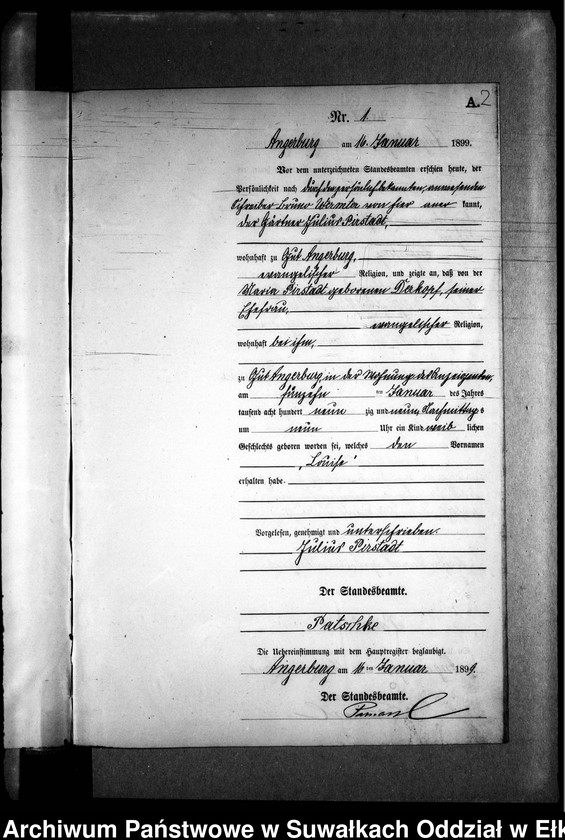 A. 2
Nr. 1
Angerburg am 16. Januar 1899.
Vor dem unterzeichneten Standesbeamten erschien heute, der
Persönlichkeit nach durch den persönlich bekannten, anwesenden
Schreiber Bruno von hier aner kannt,
der Gärtner Julius Pirstadt,
wohnhaft zu Gut Angerburg,
evangelischer Religion, und zeigte an, daß von der
Maria Pirstadt geborenen Derkopf, seiner
Ehefrau,
evangelischer Religion,
wohnhaft bei ihm,
zu Gut Angerburg in der Wohnung des Anzeigenden,
am fünzehn ten Januar des Jahres
tausend acht hundert neun zig und neun, Nachmittags
um neun Uhr ein Kind weib lichen
Geschlechts geboren worden sei, welches den Vornamen
„Louise“
erhalten habe.
Vorgelesen, genehmigt und unterschrieben.
Julius Pirstadt
Der Standesbeamte.
Patschke
Die Uebereinstimmung mit dem Hauptregister beglaubigt.
Angerburg am 16ten Januar 1899.
Der Standesbeamte.
Archiwum Państwowe w Suwałkach Oddział w Ełk